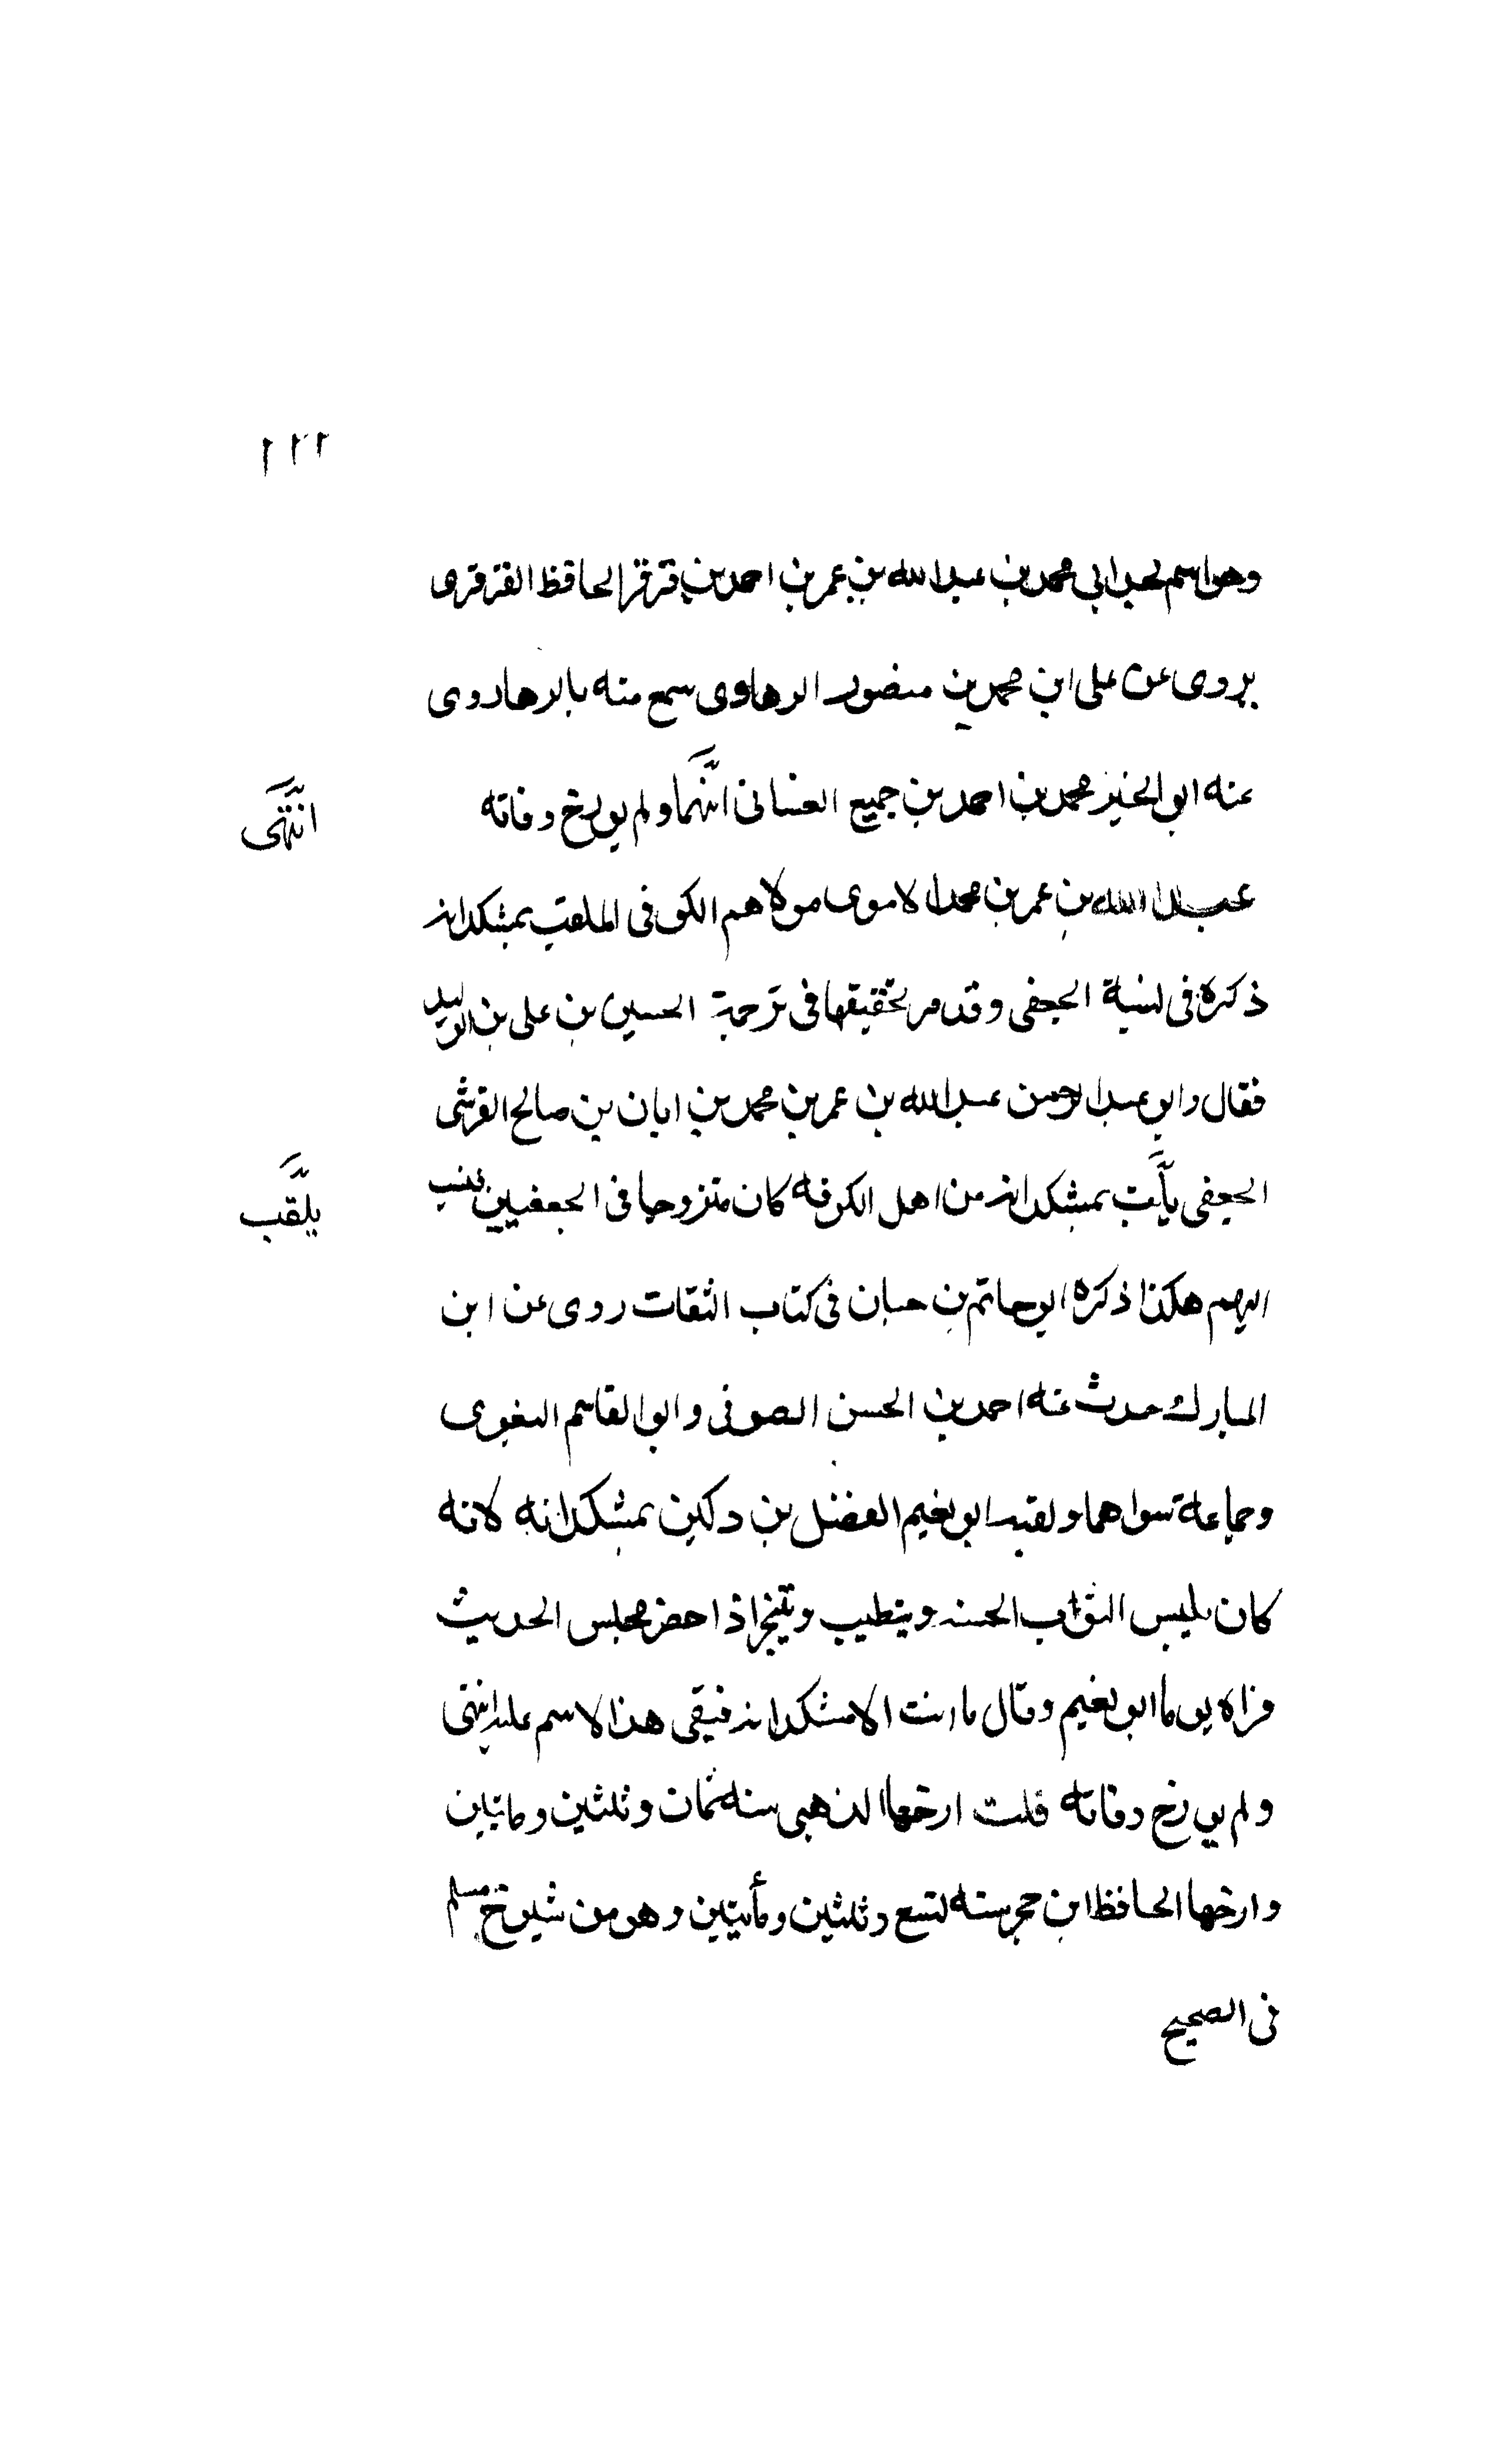 ١٢٢
وهو اسم لجد ابى محمد بن عبد الله بن عمر بن احمد بن قرقر الحافظ القرقرى
يروى عن على ابن محمد بن منصور الرهاوى سمع منه بالرها روى
عنه ابو الخير محمد بن احمد بن جميع الغسانى انتهما ولم يورخ وفاته
انتهى
عبد الله بن عمر بن محمد الاموى مولاهم الكوفى الملقب بمشكدانه
ذكره فى نسبة الجعفى وقد مر تحقيقها فى ترجمة الحسين بن على بن الوليد
فقال وابو عبد الرحمن عبد الله بن عمر بن محمد بن ابان بن صالح القرشى
الجعفى يلقب بمشكدانه من اهل الكوفه كان متزوجا فى الجعفيين فنسب
يلقب
اليهم هكذا ذكره ابو حاتم بن حبان فى كتاب الثقات روى عن ابن
المبارك حدث عنه احمد بن الحسن الصوفى وابو القاسم البغوى
وجماعة سواهما ولقبه ابو نعيم الفضل بن دكين بمشكدانه لانه
كان يلبس الثواب الحسنه ويتطيب ويتبخر اذا حضر مجلس الحديث
فراه يوما ابو نعيم وقال ما انت الا مشكدانه فبقى هذا الاسم عليه انتهى
ولم يورخ وفاته قلت ارخها الذهبى سنه ثمان وثلثين ومايتين
وارخها الحافظ ابن حجر سنه تسع وثلثين ومأيتين وهو من شيوخ مسلم
فى الصحيح